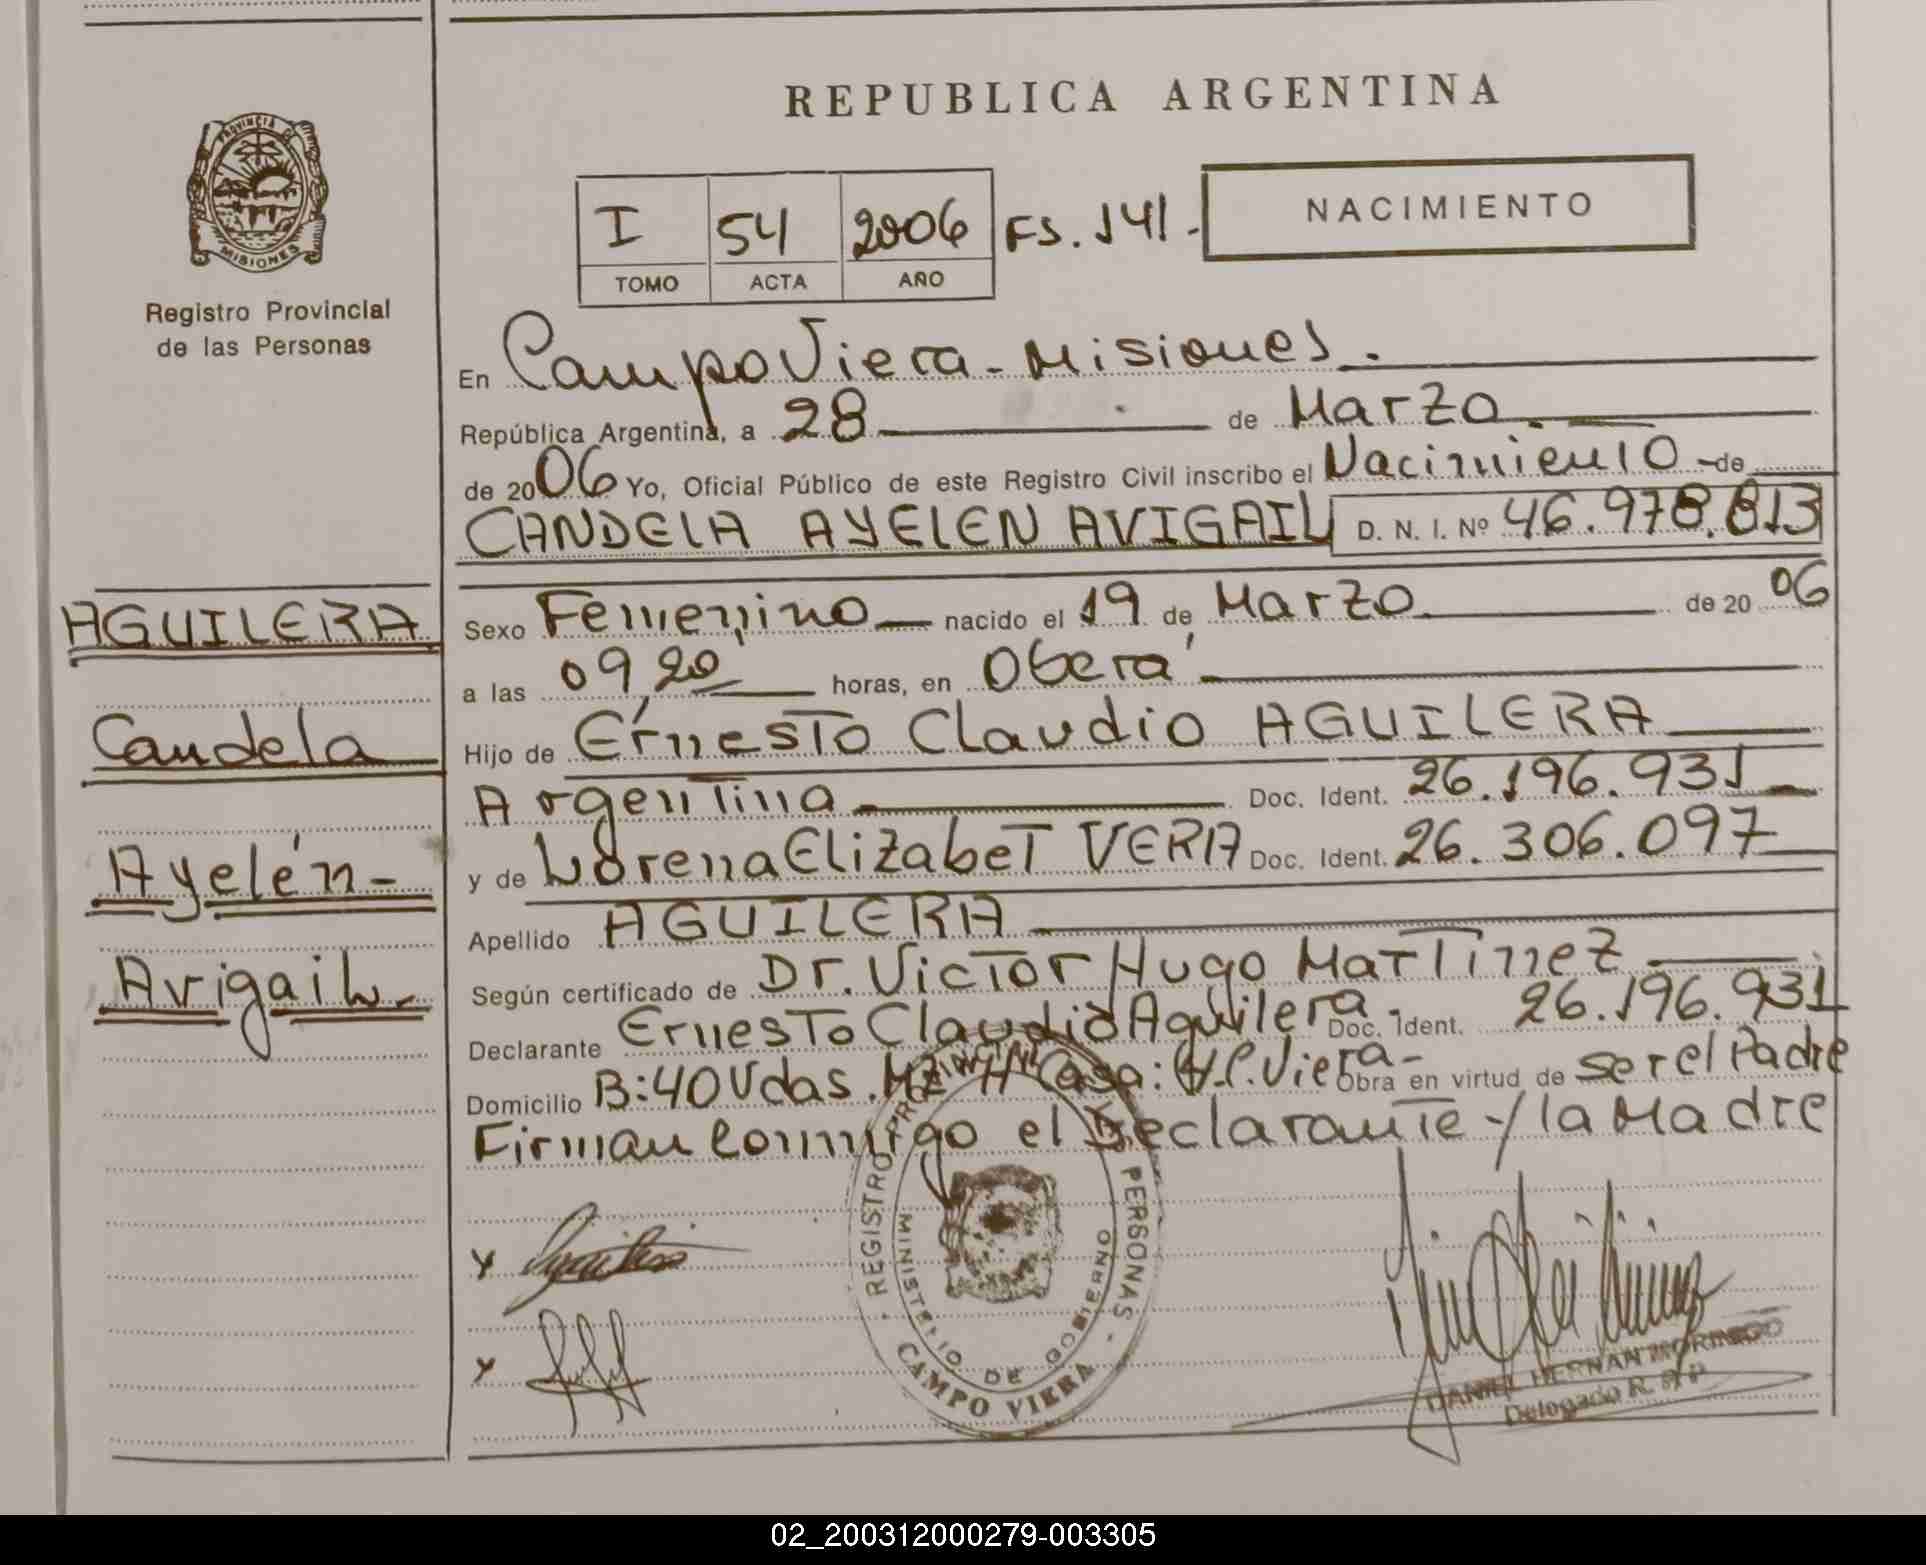 REPUBLICA ARGENTINA
PROVINCIA DE
MISIONES
Registro Provincial
de las Personas
I 54 2006 FS. 141.-
TOMO ACTA AÑO
NACIMIENTO
En Campo Viera - Misiones.
República Argentina, a 28 de Marzo
de 2006 Yo, Oficial Público de este Registro Civil inscribo el Nacimiento - de
CANDELA AYELEN AVIGAIL D. N. I. Nº 46.978.813
AGUILERA
Candela
Ayelén-
Avigail.-
Sexo Femenino nacido el 19 de Marzo de 2006
a las 09,20 horas, en Oberá
Hijo de Ernesto Claudio AGUILERA
Argentina Doc. Ident. 26.196.931
y de Lorena Elizabet VERA Doc. Ident. 26.306.097
Apellido AGUILERA
Según certificado de Dr. Victor Hugo Martinez
Declarante Ernesto Claudio Aguilera.- Doc. Ident. 26.196.931
Domicilio B:40 Vdas. Casa: Viera- Obra en virtud de ser el Padre
Firman conmigo el Declarante y la Madre
REGISTRO PERSONAS
MINISTERIO DE GOBIERNO
CAMPO VIERA
DANIEL HERNAN MORINIGO
Delegado R. P. P.
02_200312000279-003305